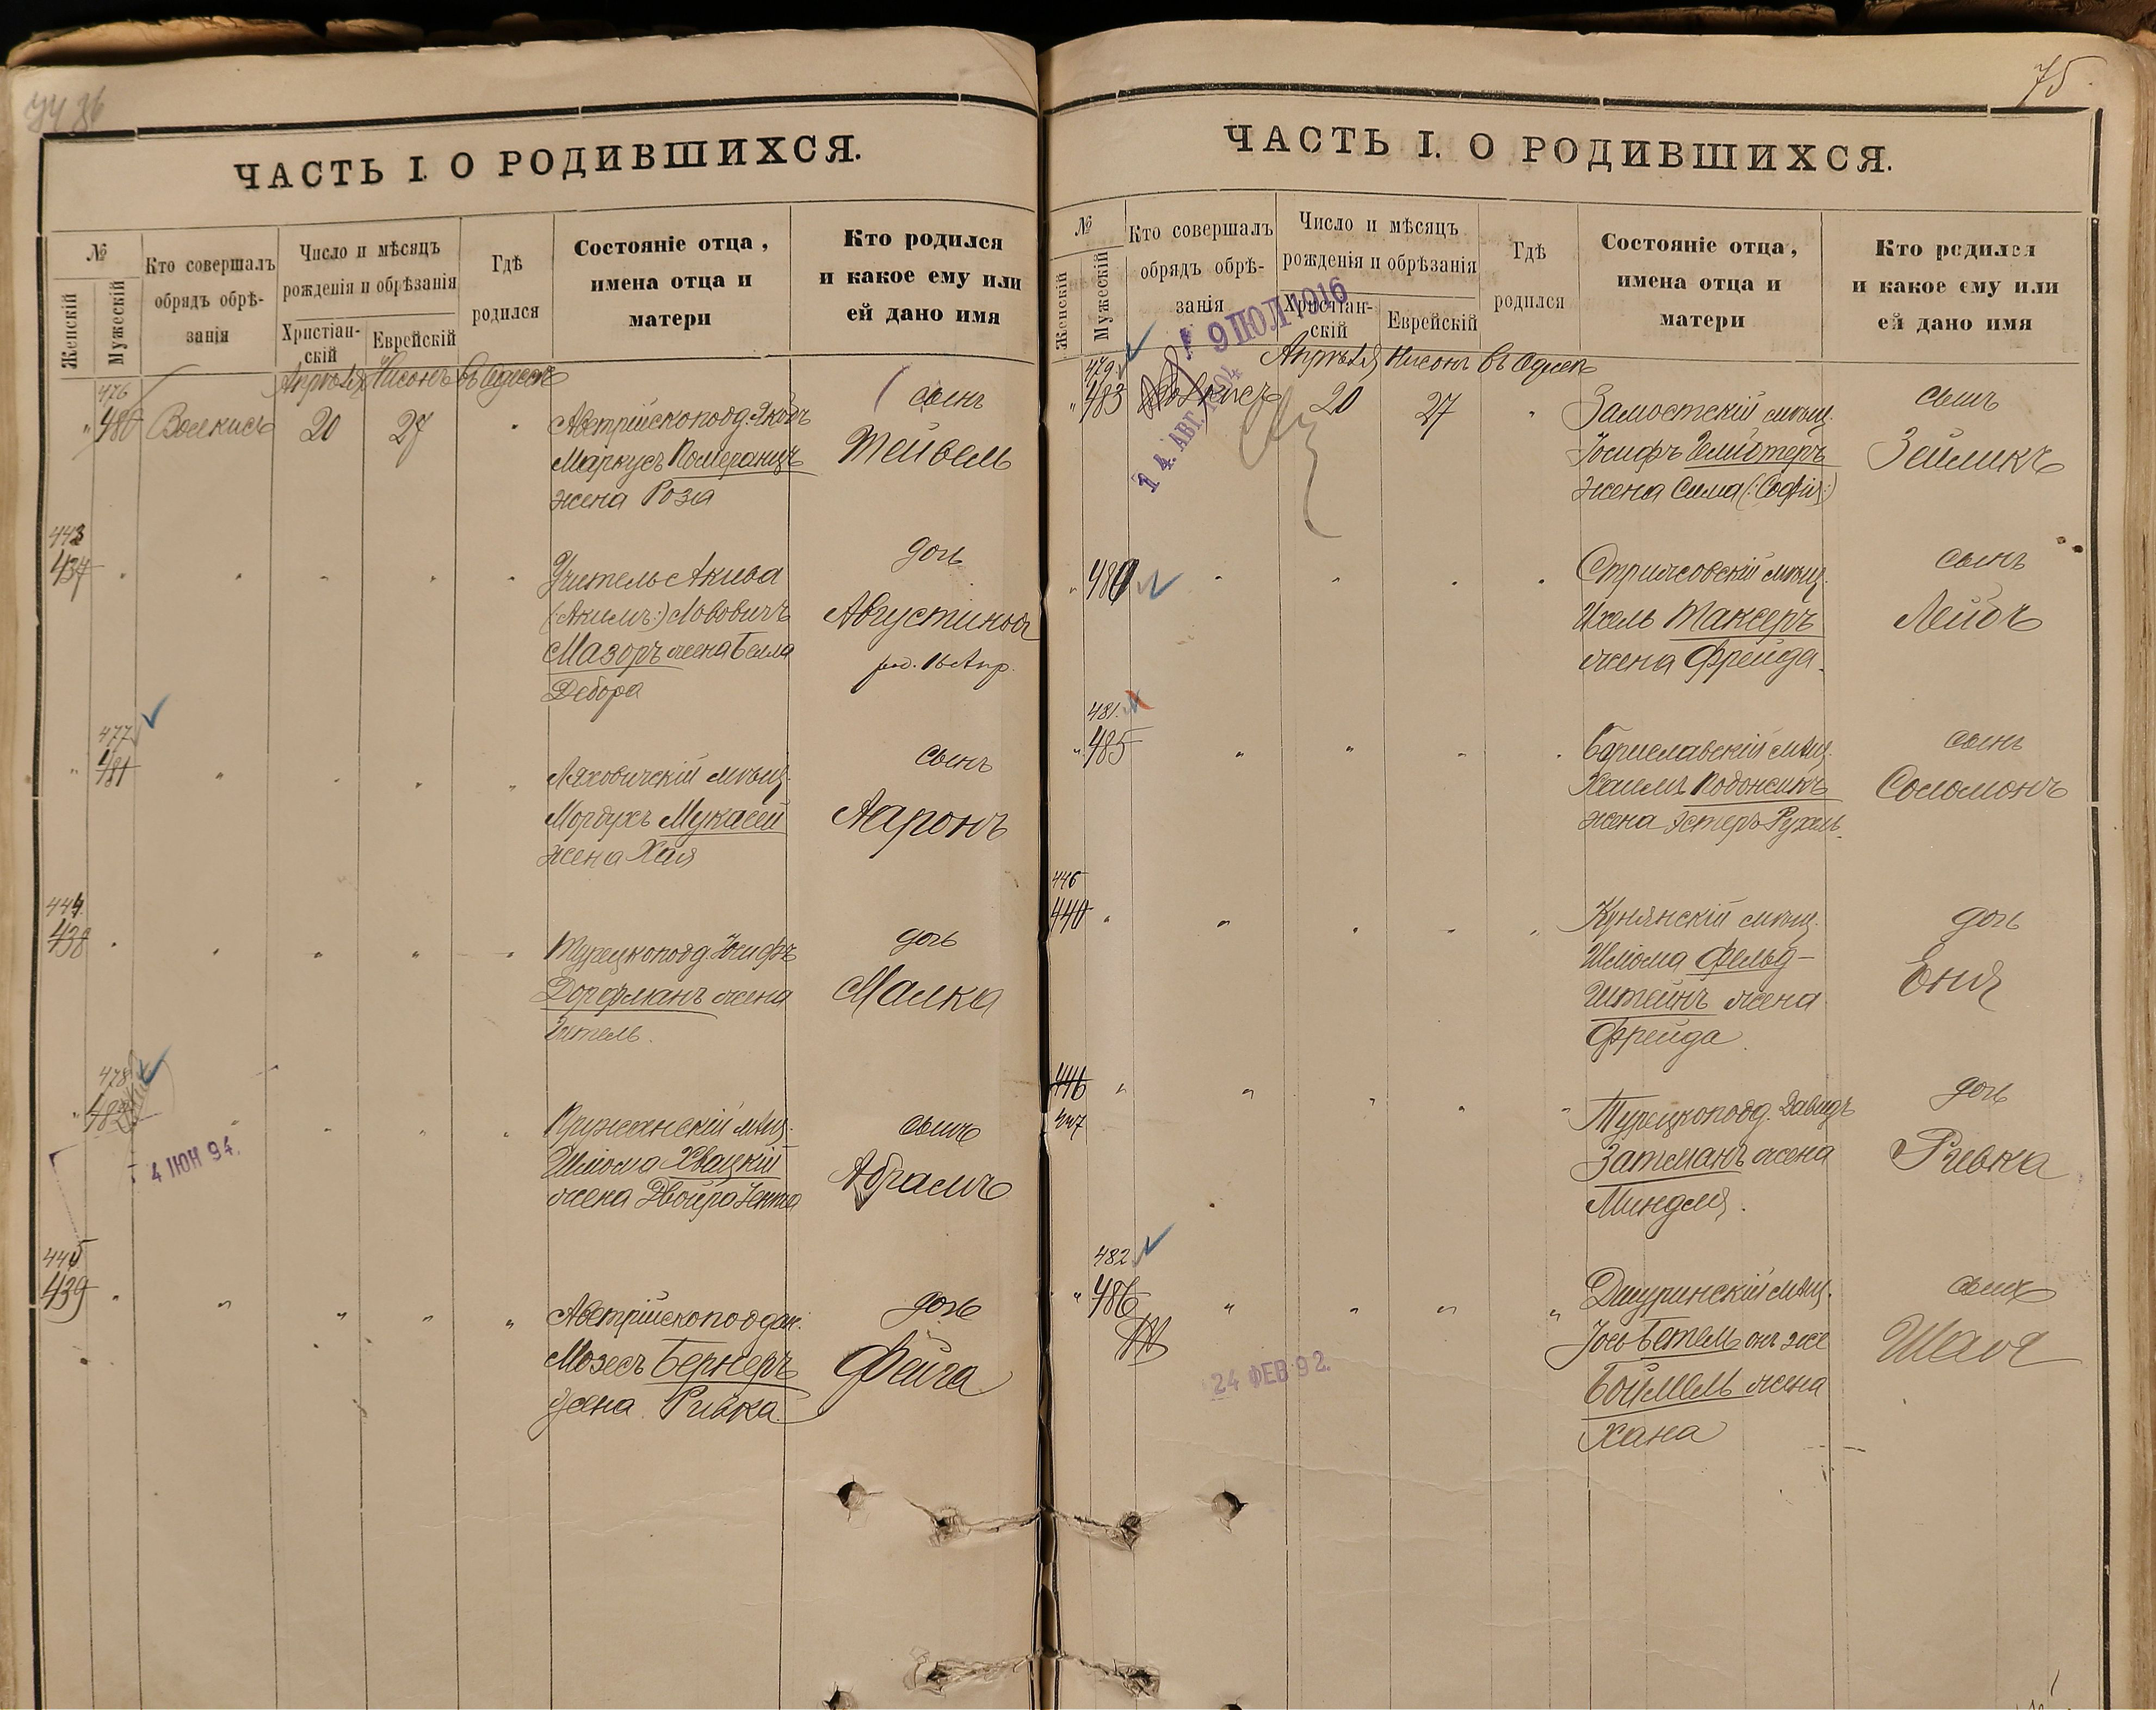 75
ЧАСТЬ I. О РОДИВШИХСЯ.
№
Женскій
Мужескій
Кто совершалъ
обрядъ обрѣ-
занія
Число и мѣсяцъ
рожденія и обрѣзанія
Христіан-
скій
Еврейскій
Гдѣ
родился
Состояніе отца,
имена отца и
матери
Кто родился
и какое ему или
ей дано имя
Апрѣля Нисонъ въ Одессѣ
476
" 480 20 27 "
Австрійскопод. Якобъ
Маркусъ Померанцъ
жена Роза
сынъ
Тейвель
443
437 " " " " "
Учитель Акива
(:Акимъ:) Лововичъ
Мазоръ жена Бейла
Дебора
дочь
Августина
род. 16 Апр.
477
" 481 " " " "
Ляховичскій мѣщ.
Мордухъ Мукасей
жена Хая
сынъ
Ааронъ
444
438 " " " " "
Турецкопод. Іосифъ
Дорфманъ жена
Итель.
дочь
Малка
478
" 482 " " " "
4 ІЮН 94.
Пружанскій мѣщ.
Шліома Хвацкій
жена Двойра Ента
сынъ
Абрамъ
445
439 " " " " "
Австрійскоподдан.
Мозесъ Бернеръ
жена Ривка.
дочь
Фейга
ЧАСТЬ I. О РОДИВШИХСЯ.
№
Женскій
Мужескій
Кто совершалъ
обрядъ обрѣ-
занія
Число и мѣсяцъ
рожденія и обрѣзанія
Христіан-
скій
Еврейскій
Гдѣ
родился
Состояніе отца,
имена отца и
матери
Кто родился
и какое ему или
ей дано имя
9 ІЮЛ 1916
4. АВГ. 1904
Апрѣля Нисонъ въ Одессѣ
479
" 483 20 27 "
Замостскій мѣщ.
Іосифъ
жена Сима (:Софія:)
сынъ
Зейликъ
" 480 " " " "
мѣщ.
Ихель Таксеръ
жена Фрейда.
сынъ
Лейбъ
481.
" 485 " " " "
Бориславскій мѣщ.
Хаимъ
жена Эстеръ Рухль.
сынъ
Соломонъ
446
440 " " " " "
Кунянскій мѣщ.
Шліома Фельд-
штейнъ жена
Фрейда.
дочь
Еня
446 " " " " "
447
Турецкопод. Давидъ
Затманъ жена
Миндля.
дочь
Ривка
482
" 486 " " " "
24 ФЕВ 92.
Джуринскій мѣщ.
Іось Бетель онъ же
Бойгмель жена
Хана
сынъ
Шая